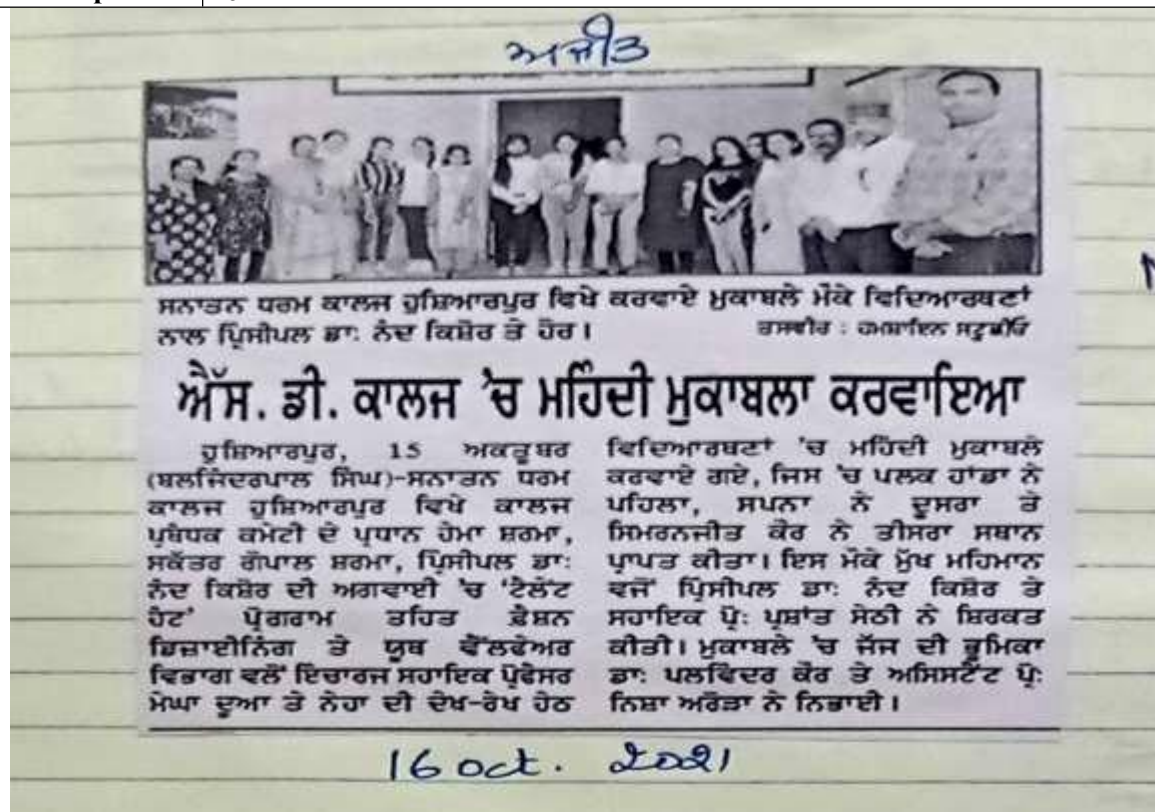 ਅਜੀਤ
ਸਨਾਤਨ ਧਰਮ ਕਾਲਜ ਹੁਸ਼ਿਆਰਪੁਰ ਵਿਖੇ ਕਰਵਾਏ ਮੁਕਾਬਲੇ ਮੌਕੇ ਵਿਦਿਆਰਥਣਾਂ
ਨਾਲ ਪ੍ਰਿੰਸੀਪਲ ਡਾ: ਨੰਦ ਕਿਸ਼ੋਰ ਤੇ ਹੋਰ।
ਤਸਵੀਰ : ਹਮਸ਼ਾਇਨ ਸਟੂਡੀਓ
ਐੱਸ. ਡੀ. ਕਾਲਜ 'ਚ ਮਹਿੰਦੀ ਮੁਕਾਬਲਾ ਕਰਵਾਇਆ
ਹੁਸ਼ਿਆਰਪੁਰ, 15 ਅਕਤੂਬਰ
(ਬਲਜਿੰਦਰਪਾਲ ਸਿੰਘ)-ਸਨਾਤਨ ਧਰਮ
ਕਾਲਜ ਹੁਸ਼ਿਆਰਪੁਰ ਵਿਖੇ ਕਾਲਜ
ਪ੍ਰਬੰਧਕ ਕਮੇਟੀ ਦੇ ਪ੍ਰਧਾਨ ਹੇਮਾ ਸ਼ਰਮਾ,
ਸਕੱਤਰ ਗੋਪਾਲ ਸ਼ਰਮਾ, ਪ੍ਰਿੰਸੀਪਲ ਡਾ:
ਨੰਦ ਕਿਸ਼ੋਰ ਦੀ ਅਗਵਾਈ 'ਚ 'ਟੈਲੇਂਟ
ਹੈਟ' ਪ੍ਰੋਗਰਾਮ ਤਹਿਤ ਫ਼ੈਸ਼ਨ
ਡਿਜ਼ਾਈਨਿੰਗ ਤੇ ਯੂਥ ਵੈੱਲਫੇਅਰ
ਵਿਭਾਗ ਵਲੋਂ ਇੰਚਾਰਜ ਸਹਾਇਕ ਪ੍ਰੋਫੈਸਰ
ਮੇਘਾ ਦੂਆ ਤੇ ਨੇਹਾ ਦੀ ਦੇਖ-ਰੇਖ ਹੇਠ
ਵਿਦਿਆਰਥਣਾਂ 'ਚ ਮਹਿੰਦੀ ਮੁਕਾਬਲੇ
ਕਰਵਾਏ ਗਏ, ਜਿਸ 'ਚ ਪਲਕ ਹਾਂਡਾ ਨੇ
ਪਹਿਲਾ, ਸਪਨਾ ਨੇ ਦੂਸਰਾ ਤੇ
ਸਿਮਰਨਜੀਤ ਕੌਰ ਨੇ ਤੀਸਰਾ ਸਥਾਨ
ਪ੍ਰਾਪਤ ਕੀਤਾ। ਇਸ ਮੌਕੇ ਮੁੱਖ ਮਹਿਮਾਨ
ਵਜੋਂ ਪ੍ਰਿੰਸੀਪਲ ਡਾ: ਨੰਦ ਕਿਸ਼ੋਰ ਤੇ
ਸਹਾਇਕ ਪ੍ਰੋ: ਪ੍ਰਸ਼ਾਂਤ ਸੇਠੀ ਨੇ ਸ਼ਿਰਕਤ
ਕੀਤੀ। ਮੁਕਾਬਲੇ 'ਚ ਜੱਜ ਦੀ ਭੂਮਿਕਾ
ਡਾ: ਪਲਵਿੰਦਰ ਕੌਰ ਤੇ ਅਸਿਸਟੈਂਟ ਪ੍ਰੋ:
ਨਿਸ਼ਾ ਅਰੋੜਾ ਨੇ ਨਿਭਾਈ।
16 oct. 2021